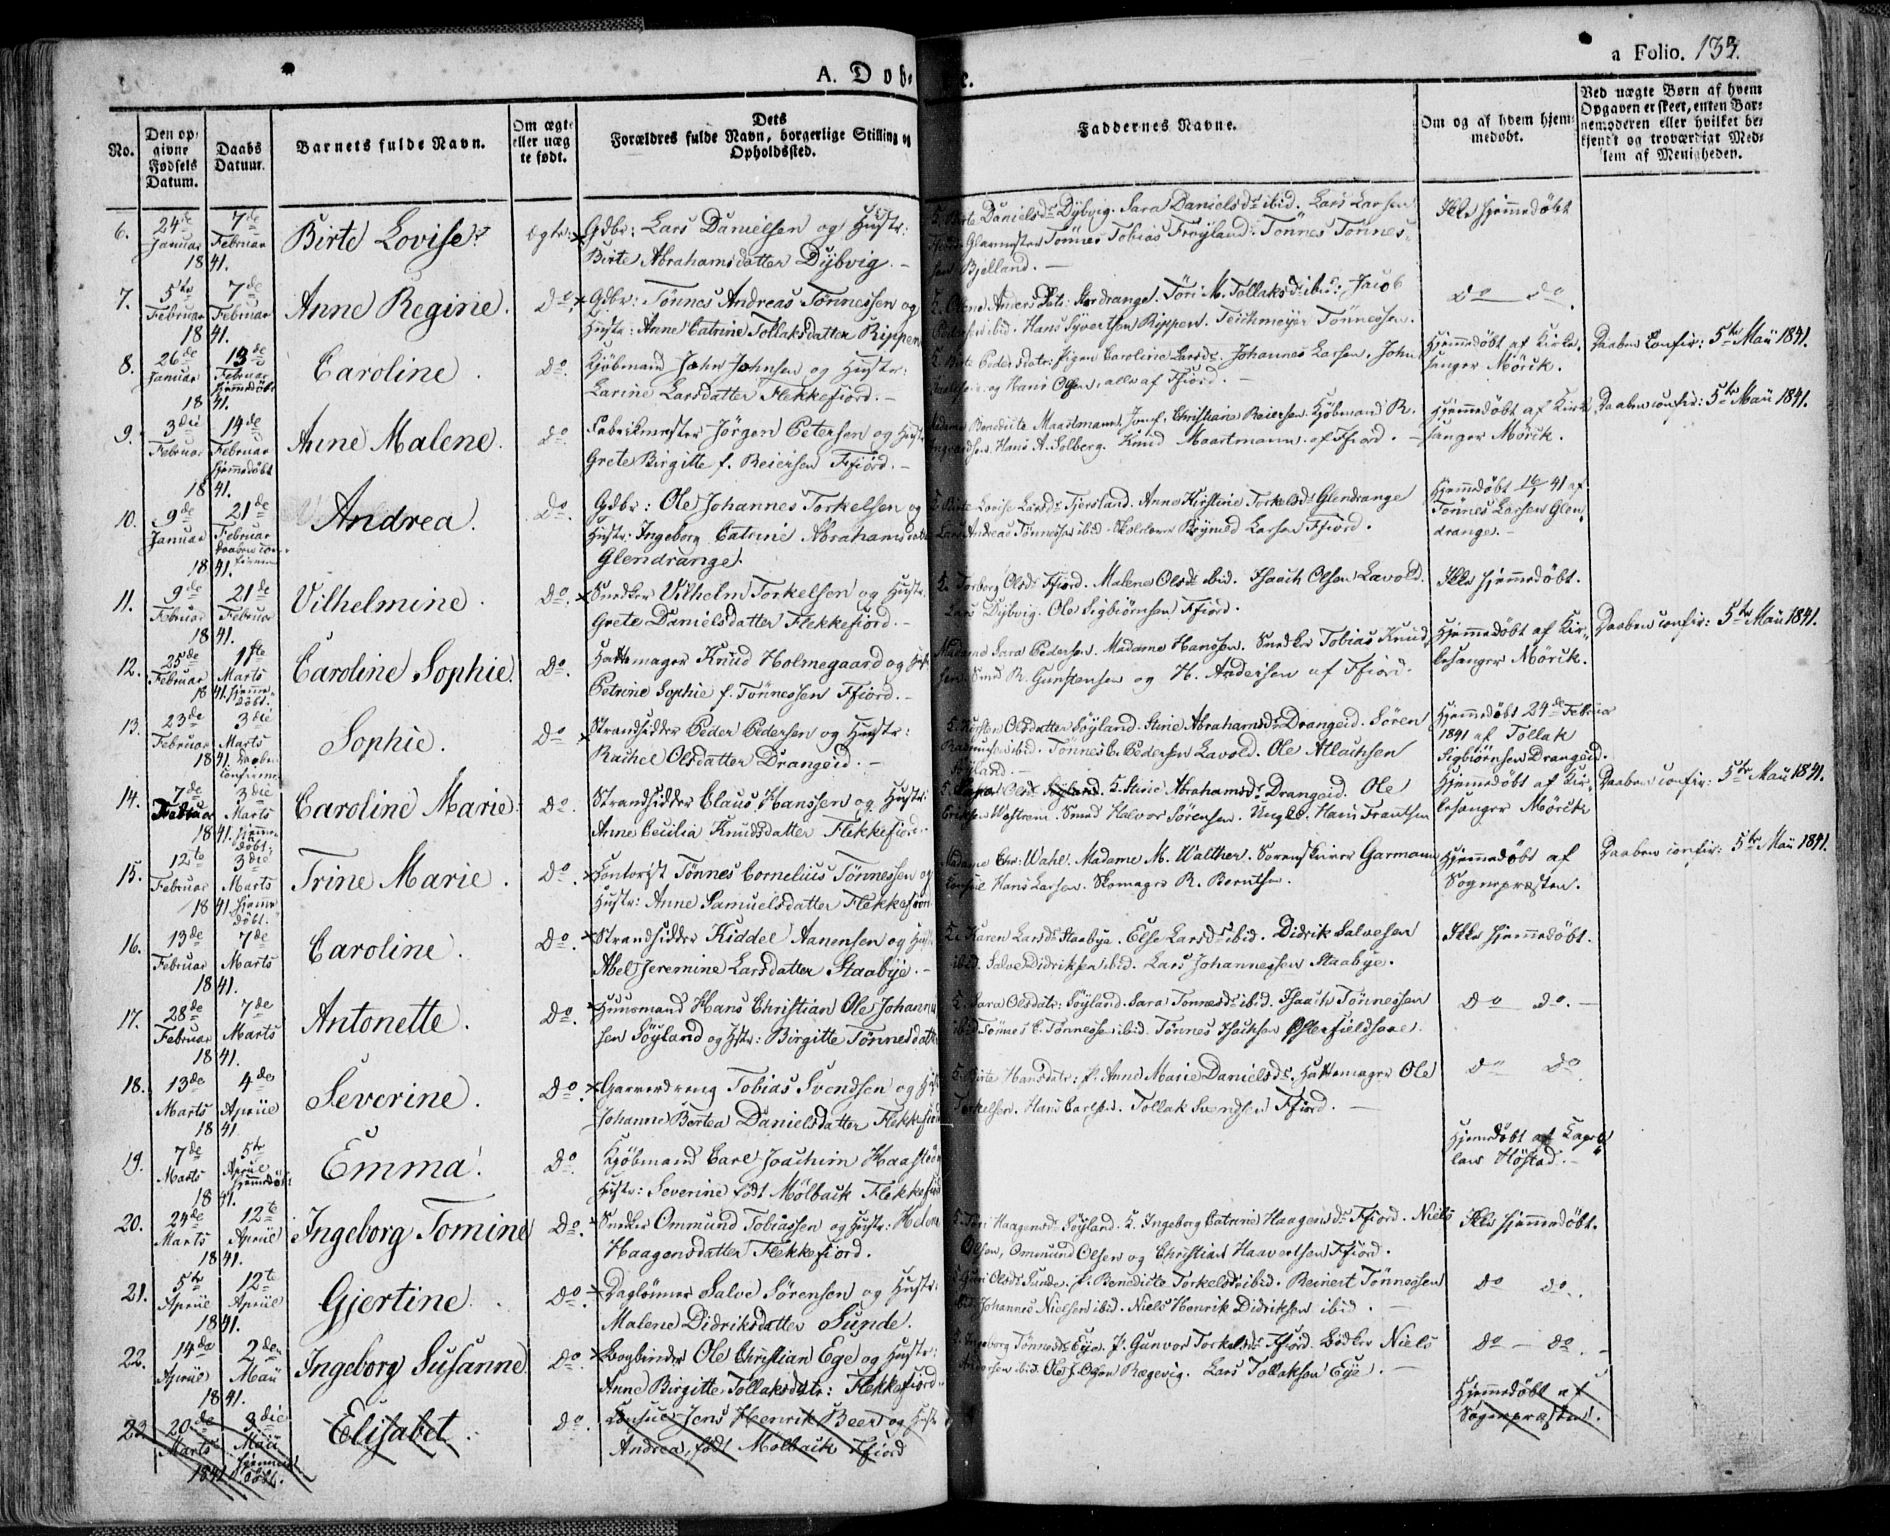 A. Døbte.
a Folio. 133.
No.
Den opgivne Fødsels Datum.
Daabs Datum.
Barnets fulde Navn.
Om ægte eller uægte født.
Dets Forældres fulde Navn, borgerlige Stilling og Opholdssted.
Faddernes Navne.
Om og af hvem hjemmedøbt.
Ved uægte Børn af hvem Opgaven er skeet, enten Barnemoderen eller hvilket bekjendt og troværdigt Medlem af Menigheden.
6. 24de Januar 1841. 7de Februar Birte Lovise. ægte. Gdbr: Lars Danielsen og Hustr:
Birte Abrahamsdatter Dybvig.
Birte Danielsdr Dybvig. Sara Danielsdr ibid. Lars Larsen
Glarmester Tönnes Tobias Fröyland. Tönnes Tönnes-
sen Bjelland.
Ikke hjemmedöbt
7. 5te Februar 1841. 7de Februar Anne Regine. Do. Gdbr: Tönnes Andreas Tönnessen og
Hustr: Anne Catrine Tollaksdatter Rippen
Jacob
ibid. Hans Syvertsen Rippen. Teichmeyer Tönnessen.
Do Do.
8. 26de Januar 1841. 13de Februar hjemmedöbt Caroline. Do. Kjöbmand John Johnsen og Hustr:
Larine Larsdatter Flekkefiord.
Birte Pedersdatr: Pigen Caroline Larsdr. Johannes Larsen, John
og Hans Olsen, alle af Ffiord.
Hjemmedöbt af Kirke-
sanger Mörck.
Daaben Confir: 5te Maii 1841.
9. 3die Februar 1841. 14de Februar hjemmedöbt Anne Malene. Do. Fabrikmester Jörgen Petersen og Hustr
Grete Birgitte f. Reiersen Ffiord.
Madame Benedicte Maartmann, Jomf. Christiane Reiersen. Kjöbmand R.
Hans A. Solberg. Knud Maartmann af Ffiord.
Hjemmedöbt af Kirke
sanger Mörck.
Daaben confir: 5te Maii 1841.
10. 9de Januar 1841. 21de Februar Andrea. Do. Gdbr: Ole Johannes Torkelsen og
Hustr: Ingeborg Catrine Abrahamsdatter
Glendrange.
Birte Lovise Larsdr Tjersland. Anne Kirstine Torkelsdr Glendrange
Lars Andreas Tönnessen ibid. Larsen Ffiord.
Hjemmedöbt 41 af
Tönnes Larsen Glen-
drange.
11. 9de Februar 1841. 21de Februar Vilhelmine. Do. Snedker Vilhelm Torkelsen og Hustr.
Grete Danielsdatter Flekkefiord.
Torborg Olsdr Ffiord. Malene Olsdr ibid. Isaach Olsen Lavold.
Lars Dybvig. Ole Sigbiörnsen Ffiord.
Ikke hjemmedöbt.
12. 25de Februar 1841. 1ste Marts hjemmedöbt. Caroline Sophie. Do. Hattemager Knud Holmegaard og Hustr
Petrine Sophie f. Tönnessen Ffiord.
Madame Sara Pedersen. Madame Hanssen. Snedker Tobias Knud-
sen. Smed R. Gunstensen og H. Andersen af Ffiord.
Hjemmedöbt af Kir-
kesanger Mörck.
Daaben confir: 5te Maii 1841.
13. 23de Februar 1841. 3die Marts Sophie. Do. Strandsidder Peder Pedersen og Hustr:
Rachel Olsdatter Drangeid.
Kirsten Olsdatter Söyland. Stine Abrahamsdr Drangeid. Sören
ibid. Tönnes C. Pedersen Lavold. Ole Atlachsen
Söyland.
Hjemmedöbt 24de Februar
1841 af Tollak
Sigbiörnsen Drangeid.
14. 7de Februar 1841. 3die Marts hjemmedöbt. Caroline Marie. Do. Strandsidder Claus Hanssen og Hustr:
Anne Cecilia Knudsdatter Flekkefiord.
Stine Abrahamsdr Drangeid. Ole
Smed Halvor Sörensen. Ungk. Hans Frantsen
Hjemmedöbt af Kir-
kesanger Mörck
Daaben confir: 5te Maii 1841.
15. 12te Februar 1841. 3die Marts hjemmedöbt. Trine Marie. Do. Kontorist Tönnes Cornelius Tönnessen og
Hustr: Anne Samuelsdatter Flekkefiord
Madame Chr: Wahl. Madame M. Walther. Sorenskriver Garmann
Consul Hans Larsen. Skomager R. Berntsen.
Hjemmedöbt af
Sognepræsten.
Daaben confir: 5te Maii 1841.
16. 13de Februar 1841. 7de Marts Caroline. Do. Strandsidder Kiddel Aanensen og Hustr
Abel Jeremine Larsdatter Staabye.
Karen Larsdr Staabye. Else Larsdr ibid. Didrik Salvesen
ibid. Salve Didriksen ibid. Lars Johannessen Staabye.
Ikke hjemmedöbt.
17. 28de Februar 1841. 7de Marts Antonette. Do. Huusmand Hans Christian Ole Johannes-
sen Söyland og Hstr: Birgitte Tönnesdatter
Sara Olsdatr: Söyland. Sara Tönnesdr ibid. Isaach Tönnessen
ibid. Tönnes C. Tönnessen ibid. Tönnes Isachsen
Do Do.
18. 13de Marts 1841 4de Apriil Severine. Do. Garverdreng Tobias Svendsen og Hustr
Johanne Bertea Danielsdatter Flekkefiord
Birte Hansdatr: P. Anne Marie Danielsdr. Hattemager Ole
Torkelsen. Hans Carlsen. Tollak Svendsen Ffiord.
Do Do.
19. 7de Marts 1841. 5te Apriil hjemmedöbt Emma. Do. Kjöbmand Carl Joachim Haasted og
Hustr: Severine födt Mölbach Flekkefiord
Hjemmedöbt af Capel-
lan Höstad.
20. 24de Marts 1841. 12te Apriil Ingeborg Tomine Do. Snedker Ommund Tobiassen og Hustr: Helene
Haagensdatter Flekkefiord.
Tori Haagensdr Söyland. Ingeborg Catrine Haagensdr Ffiord. Niels
Olsen, Ommund Olsen og Christian Haavertsen Ffiord.
Ikke hjemmedöbt.
21. 5te Apriil 1841. 12te Apriil Gjertine. Do. Daglönner Salve Sörensen og Hustr:
Malene Didriksdatter Sunde.
Guri Olsdr Sunde. P. Benedicte Torkelsdr ibid. Reinert Tönnessen
ibid. Johannes Nielsen ibid. Niels Henrik Didriksen ibid.
Do Do.
22. 14de Apriil 1841. 2den Maii Ingeborg Susanne Do. Bogbinder Ole Christian Ege og Hustr:
Anne Birgitte Tollaksdatr: Flekkefiord.
Ingeborg Tönnesdr Eye. P. Gunvor Torkelsdr Ffiord. Bödker Niels
Andersen ibid. Ole J. Olsen Rægevig. Lars Tollaksen Eye.
Do Do.
23. 20de Marts 1841 3die Maii hjemmedöbt. Elisabet. Do. Consul Jens Henrik Beer og Hustr
Andrea, födt Mölbach Ffiord
Hjemmedöbt af
Sognepræsten.